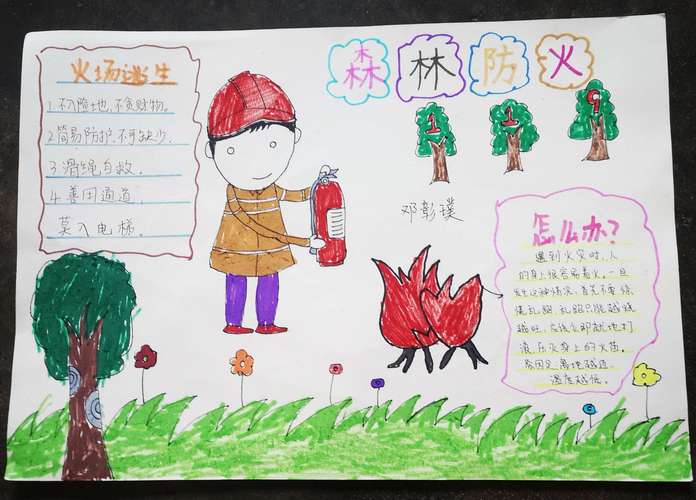 森林防火
火场逃生
1.不入险地,不贪财物。
2.简易防护,不可缺少.
3.滑绳自救.
4.善用通道.
莫入电梯.
119
邓彰璞
怎么办?
遇到火灾时,人
的身上很容易着火。一旦
发生这种情况,首先不要惊
慌乱跑,乱跑只能越烧
越旺,应该立即就地打
滚,压灭身上的火苗。
离地越近
温度越低。